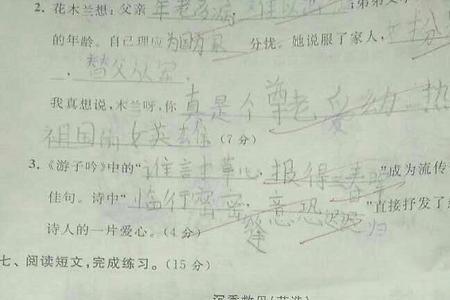 2. 花木兰想:父亲年老多病,难以
的年龄。自己理应为国为家 分忧。她说服了家人,
,替父从军。
我真想说,木兰呀,你真是个尊老爱幼、热
祖国的女英雄(7分)
3.《游子吟》中的"谁言寸草心,报得三春晖"成为流传
佳句。诗中"临行密密缝,意恐迟迟归"直接抒发了
诗人的一片爱心。(4分)
七、阅读短文,完成练习。(15分)